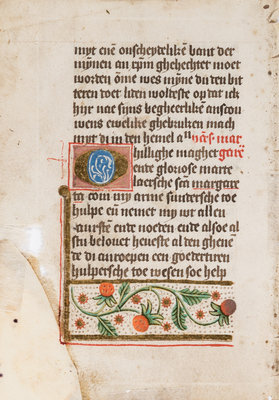 myt enē onscheydelikē bant der
mỹnen an cpm̄ ghehechtet moet
worden om̄e wes mỹne du den bit
teren doet liden woldeste op dat ick
hijr nae sijns begheerlikē anscou
wens ewelike ghebruken mach
myt di in den hemel a
hillighe maghet
ente gloriose marte
laersche sct̄e margare
ta com my arme sundersche toe
hulpe en̄ nemet my wt allen
anrste ente noeden ente alsoe al
stu belouet heueste al den ghene
de di anroepen een goedertiren
hulpersche toe wesen soe help